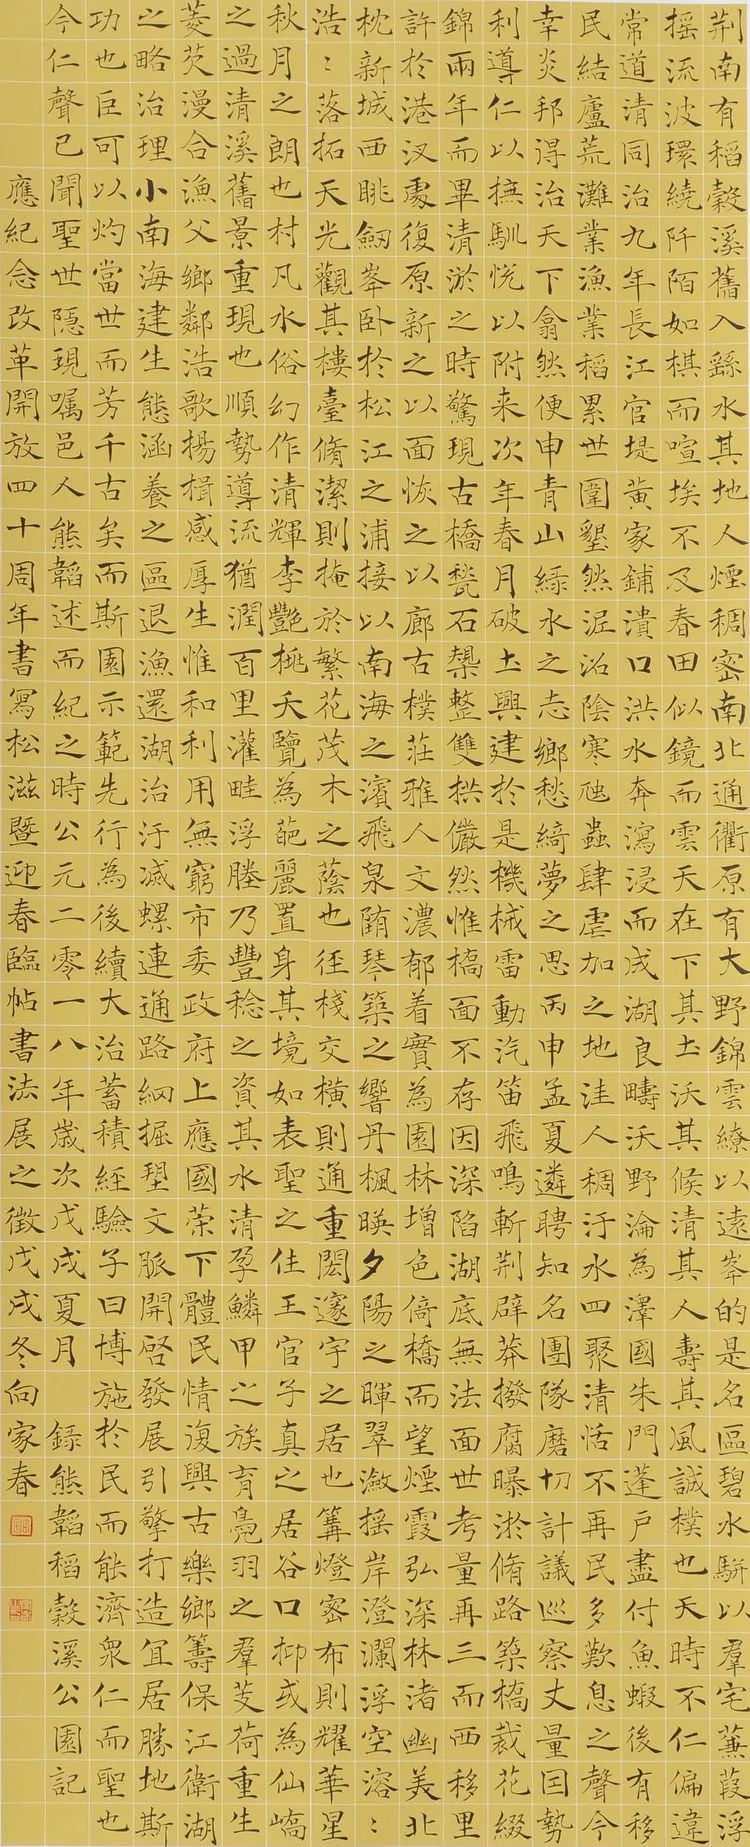 荆南有稻穀溪舊入繇水其地人煙稠密南北通衢原有大野錦雲繚以遠岑的是名區碧水駢以羣宅蒹葭浮
摇流波環繞阡陌如棋而喧埃不及春田似鏡而雲天在下其土沃其候清其人壽其風誠樸也天時不仁偏違
常道清同治九年長江官堤黄家鋪潰口洪水奔瀉浸而成湖良疇沃野淪為澤國朱門蓬戶盡付魚蝦後有移
民結廬荒灘業漁業稻累世圍墾然泥沼陰寒虺蟲肆虐加之地洼人稠汙水四聚清恬不再民多歎息之聲今
幸炎邦得治天下翕然便申青山綠水之志鄉愁綺夢之思丙申孟夏遴聘知名團隊磨切計議巡察丈量因勢
利導仁以撫馴悦以附来次年春月破土興建於是機械雷動汽笛飛鳴斬荆辟莽撥腐曝淤脩路築橋裁花綴
錦兩年而畢清淤之時驚現古橋甃石槼整雙拱儼然惟橋面不存因深陷湖底無法面世考量再三而西移里
許於港汊處復原新之以面恢之以廊古樸莊雅人文濃郁着實為園林增色倚橋而望煙霞弘深林渚幽美北
枕新城西眺劒峯卧於松江之浦接以南海之濱飛泉陏琴築之響丹楓暎夕陽之暉翠瀲摇岸澄瀾浮空溶〻
浩〻落拓天光觀其樓臺脩潔則掩於繁花茂木之蔭也徑棧交橫則通重閎邃宇之居也篝燈密布則耀華星
秋月之朗也村凡水俗幻作清輝李艷桃夭覽為葩麗置身其境如表聖之住王官子真之居谷口抑或為仙嶠
之過清溪舊景重現也順勢導流猶潤百里灌畦浮塍乃豐稔之資其水清孕鱗甲之族育鳧羽之羣芰荷重生
菱芡漫合漁父鄉鄰浩歌揚楫感厚生惟和利用無窮市委政府上應國策下體民情復興古樂鄉籌保江衛湖
之略治理小南海建生態涵養之區退漁還湖治汙滅螺連通路網掘文脈開啓發展引擎打造宜居勝地斯
功也巨可以灼當世而芳千古矣而斯園示範先行為後續大治蓄積經驗子曰博施於民而能濟衆仁而聖也
今仁聲已聞聖世隱現囑邑人熊韜述而紀之時公元二零一八年歲次戊戌夏月 錄熊韜稻穀溪公園記
應紀念改革開放四十周年書寫松滋暨迎春臨帖書法展之徵戊戌冬向家春